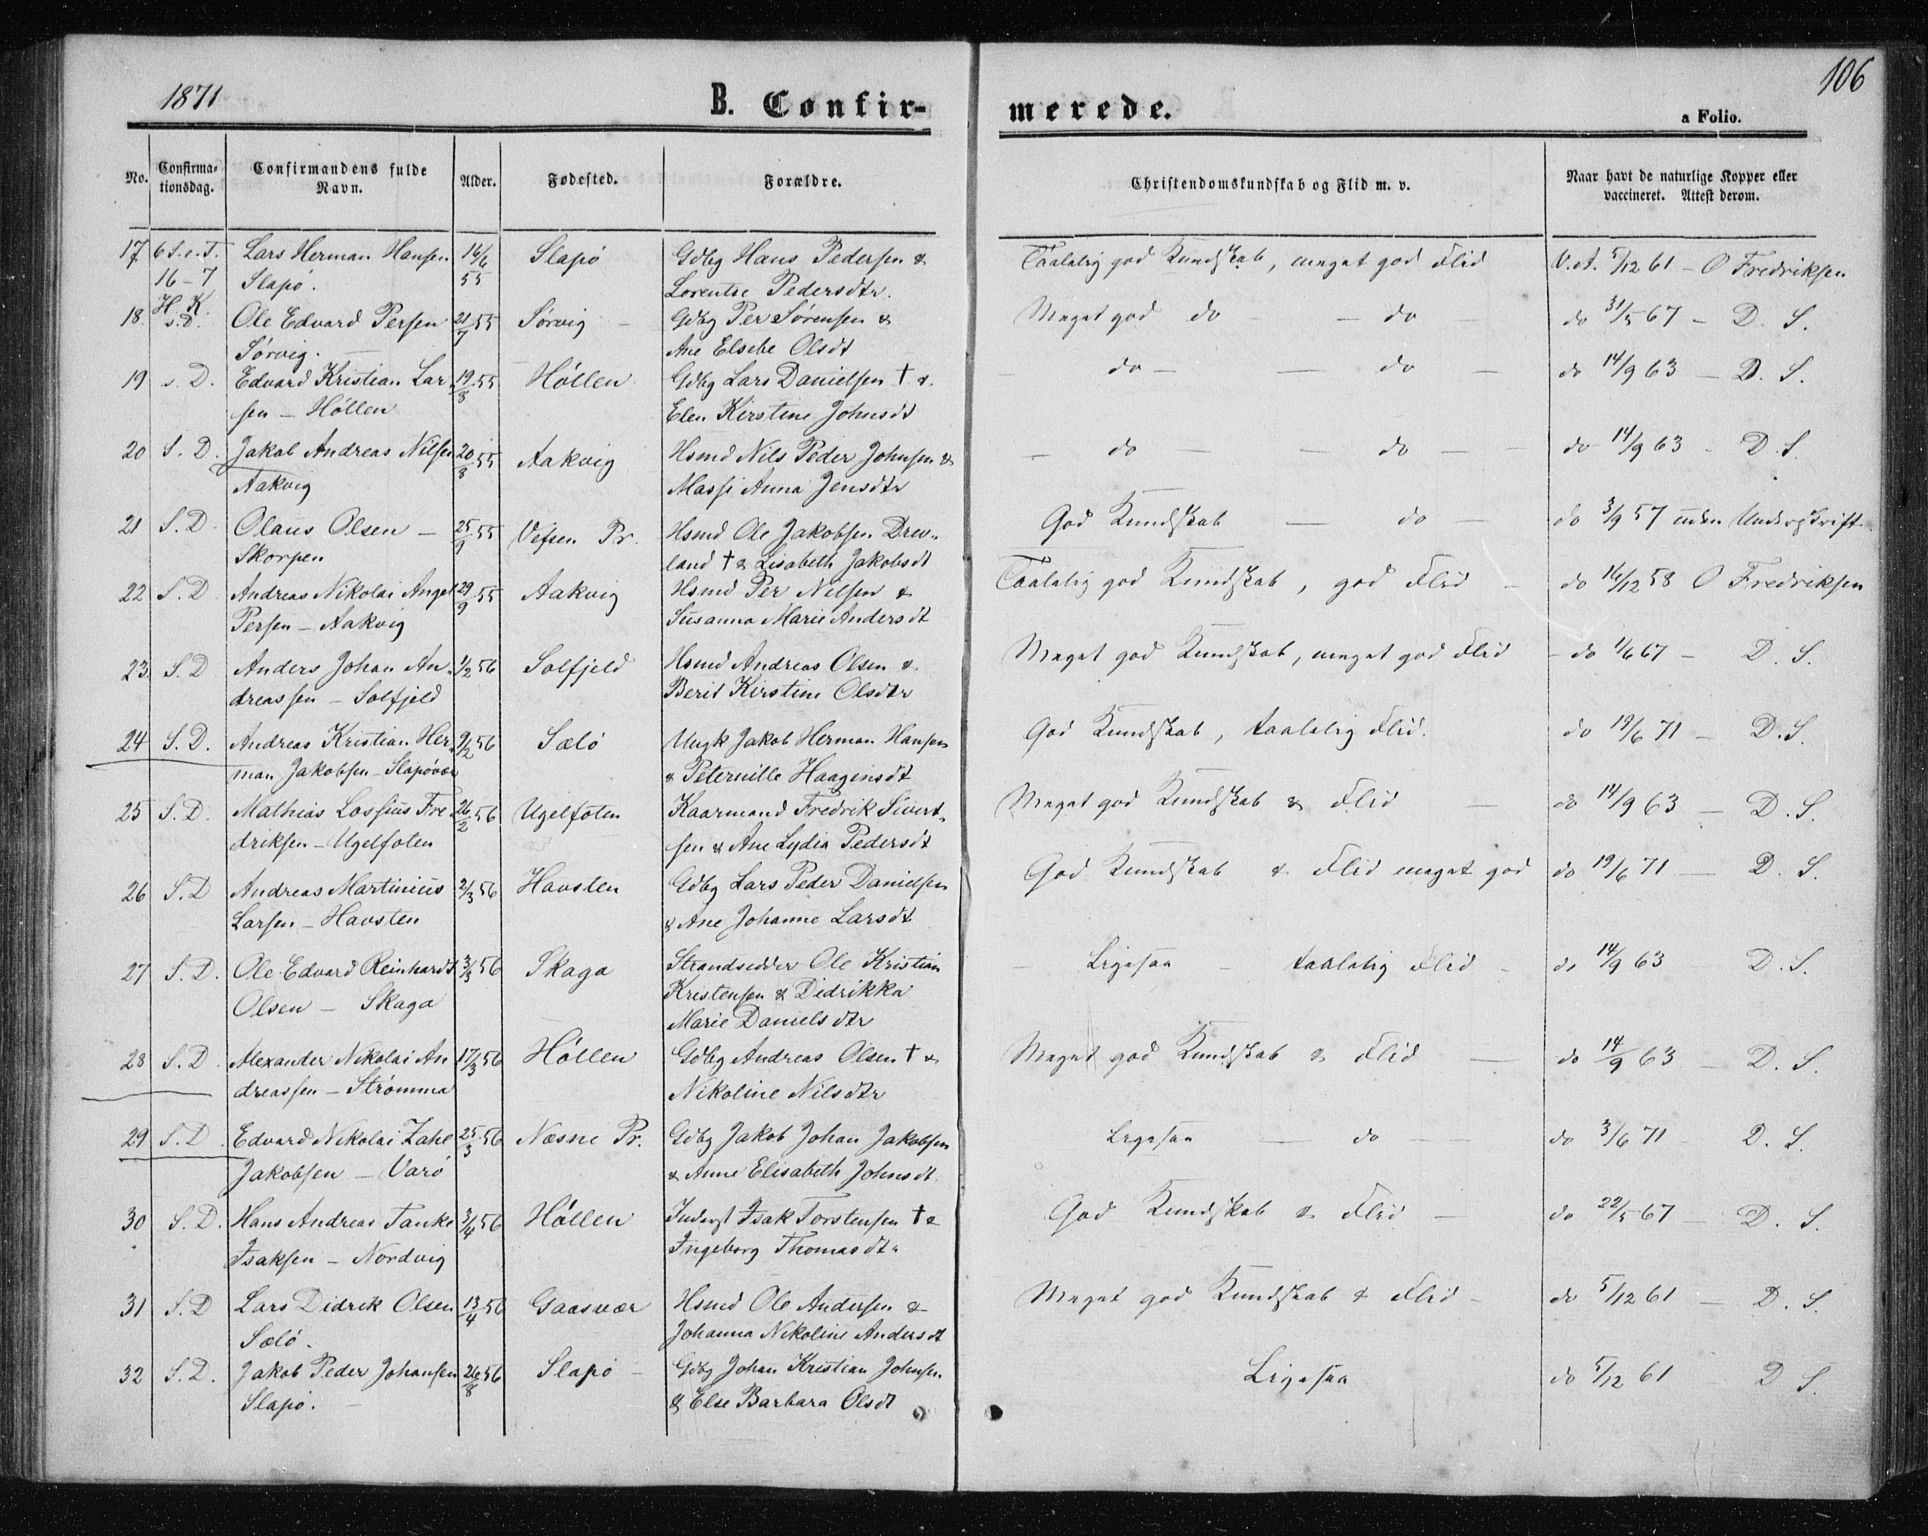 1871
B. Confirmerede.
106
a Folio.
No.
Confirma-
tionsdag.
Confirmandens fulde
Navn.
Alder.
Fødested.
Forældre.
Christendomskundskab og Flid m. v.
Naar havt de naturlige Kopper eller
vaccineret. Attest derom.
17 6 S. e. T. Lars Herman Hansen 16/6 Slapö Gdbg Hans Pedersen & Taalelig god Kundskab, meget god Flid V. A. 5/12 61 - O Fredriksen
16-7 Slapö. 55 Lorentse Pedersdtr.
H. K.
18 s. D. Ole Edvard Persen 21/7 55 Sörvig - Gdbg Per Sørensen & Meget god do - do - do 31/5 67 - D. S.
Sørvig. Ane Elsebe Olsdt
19 s. D. Edvard Kristian Lar- 19/8 55 Höllen Gdbg Lars Danielsen † & - do - - do - do 14/9 63 - D. S.
sen - Höllen Elen Kirstine Johnsdt
20 S. D. Jakob Andreas Nilsen 20/8 55 Aakvig Hsmd Nils Peder Johnsen & - do - - do - do 14/9 63 - D. S.
Aakvig Massi Anna Jensdtr
21 S. D. Olaus Olsen - 25/9 55 Vefsen Pr. Hsmd Ole Jakobsen Drev- God Kundskab - do - do 3/9 57 uden Underskrift
Skorpen land † & Lisabeth Jakobsdt
22 S. D. Andreas Nikolai Angel 29/9 55 Aakvig Hsmd Per Nilsen & Taalelig god Kundskab, god Flid - do 16/12 58 O Fredriksen
Persen - Aakvig Susanna Marie Andersdt
23. S. D Anders Johan An- 1/2 56 Solfjeld Hsmd Andreas Olsen & Meget god Kundskab, meget god Flid - do 1/6 67 - D. S.
dreassen - Solfjeld Berit Kirstine Olsdtr
24 S. D. Andreas Kristian Her- 9/2 56 Sælö Ungk Jakob Herman Hansen God Kundskab, taalelig Flid. do 19/6 71 - D. S.
man Jakobsen - Slapövær & Peternille Haagensdt
25 S. D. Mathias Lossius Fre- 26/2 56 Ugelfoten Kaarmand Fredrik Sivert- Meget god Kundskab & Flid - do 14/9 63 - D. S.
driksen - Ugelfoten sen & Ane Lydia Pedersdt
26 S. D Andreas Martinius 2/3 56 Havsten Gdbg Lars Peder Danielsen God Kundskab & Flid meget god do 19/6 71 - D. S.
Larsen - Havsten & Ane Johanne Larsdt
27 S. D. Ole Edvard Reinhardt 3/3 56 Skaga Strandsidder Ole Kristian - Ligesaa - taalelig Flid - do 14/9 63 D. S.
Olsen - Skaga Kristensen & Didrikka
Marie Danielsdtr
28 S. D. Alexander Nikolai An 17/3 56 Höllen Gdbg Andreas Olsen † & Meget god Kundskab & Flid - do 14/9 63 - D. S.
dreassen - Strømma Nikoline Nilsdtr
29 S. D. Edvard Nikolai Zahl 25/3 56 Næsne Pr. Gdbg Jakob Johan Jakobsen Ligesaa - do - do 3/6 71 - D. S.
Jakobsen - Varö & Anne Elisabeth Johnsdt.
30 S. D. Hans Andreas Tanke 3/4 56 Höllen Inderst Isak Torstensen † & God Kundskab & Flid - do 22/5 67 - D. S.
Isaksen - Nordvig Ingeborg Thomasdtr
31 S. D Lars Didrik Olsen 13/4 56 Gaasvær Hsmd Ole Andersen & Meget god Kundskab & Flid - do 5/12 61 - D. S.
Sælö. Johanna Nikoline Andersdt
32 S. D. Jakob Peder Johansen 26/8 56 Slapö - Gdbg Johan Kristian Johnsen Ligesaa do 5/12 61 D S.
Slapö. - & Else Barbara Olsdt